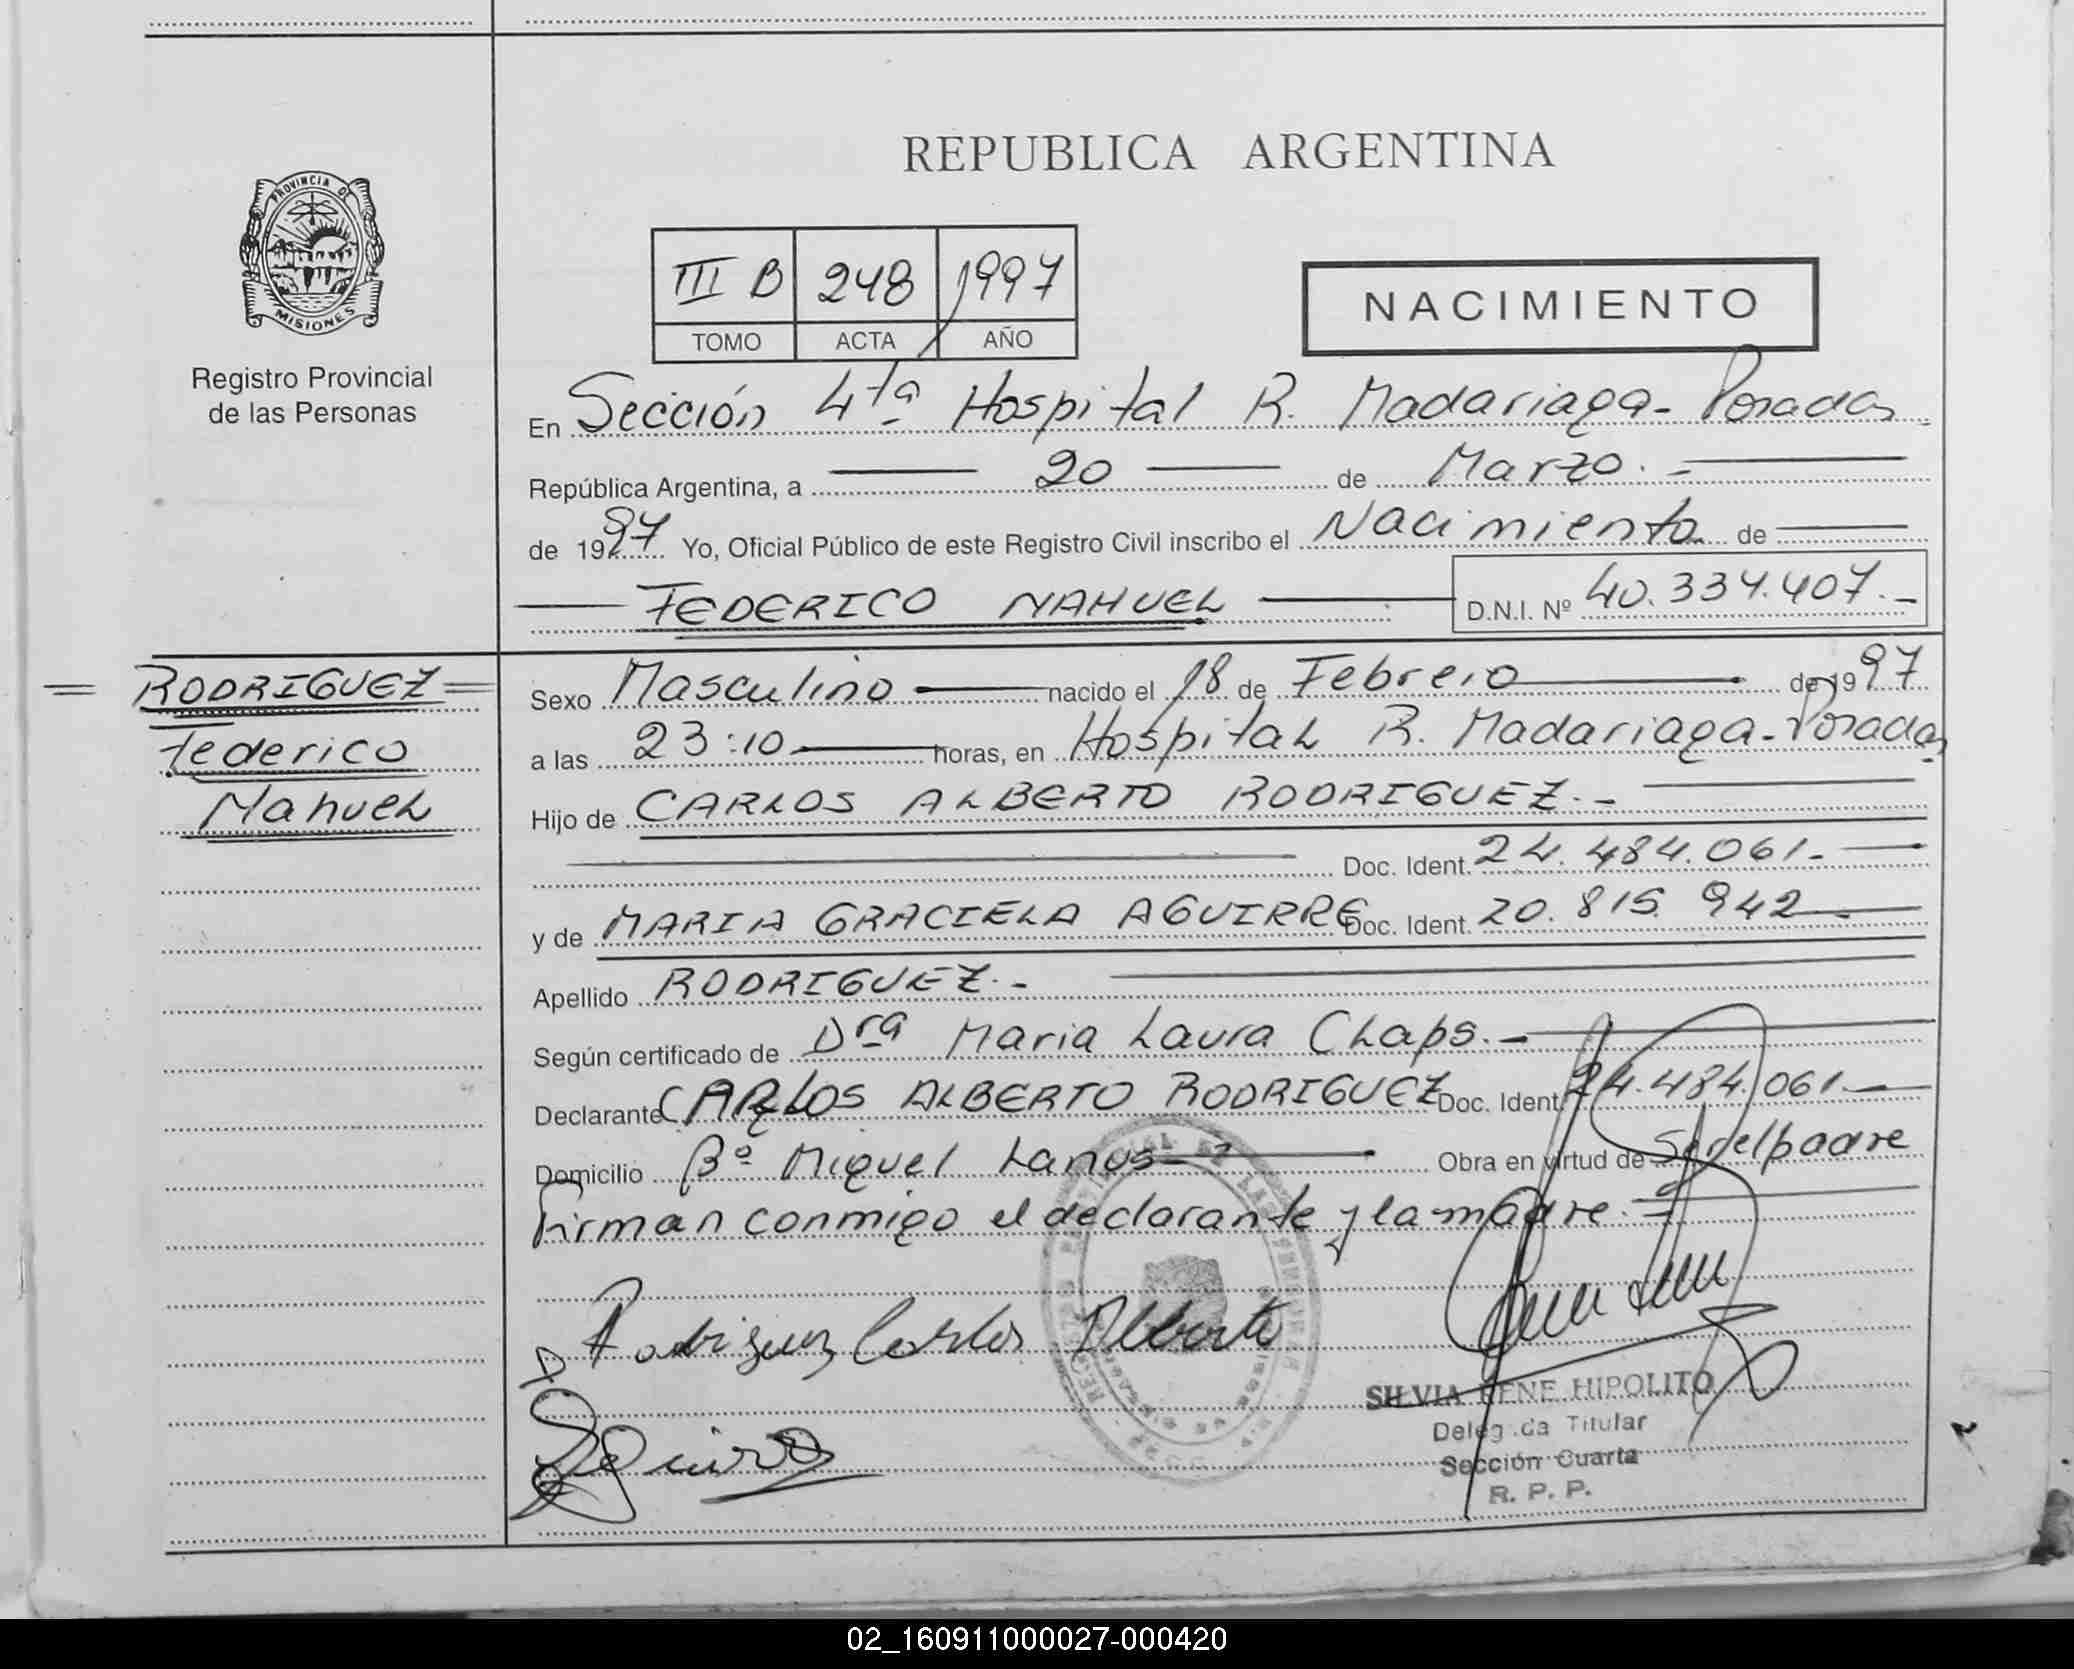 REPUBLICA ARGENTINA
PROVINCIA DE
MISIONES
Registro Provincial
de las Personas
III B 248 1997
TOMO ACTA AÑO
NACIMIENTO
En Sección 4ta Hospital R. Madariaga - Posadas
República Argentina, a 20 de Marzo.-
de 1997 Yo, Oficial Público de este Registro Civil inscribo el Nacimiento de
FEDERICO NAHUEL D.N.I. Nº 40.334.407.-
= RODRIGUEZ =
Federico
Nahuel
Sexo Masculino nacido el 18 de Febrero de 1997
a las 23:10 horas, en Hospital R. Madariaga - Posadas
Hijo de CARLOS ALBERTO RODRIGUEZ.-
Doc. Ident. 24.484.061.-
y de MARIA GRACIELA AGUIRRE Doc. Ident. 20.815.942
Apellido RODRIGUEZ.-
Según certificado de Dra Maria Laura Chaps.-
Declarante CARLOS ALBERTO RODRIGUEZ Doc. Ident. 24.484.061.-
Domicilio Bº Miguel Lanus Obra en virtud de Ser el padre
Firman conmigo el declarante y la madre.=
Rodriguez Carlos Alberto
SILVIA RENE HIPOLITO
Delegada Titular
Sección Cuarta
R. P. P.
02_160911000027-000420